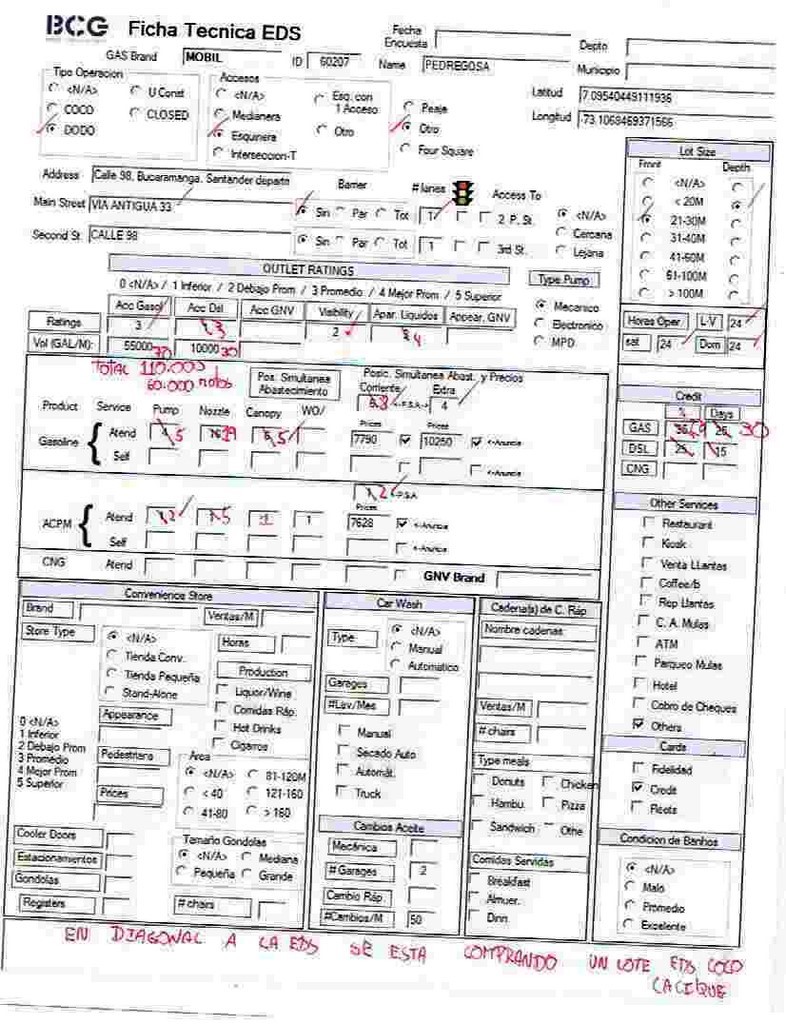 BCG Ficha Tecnica EDS
Fecha Encuesta
Depto
GAS Brand MOBIL ID 60207 Name PEDREGOSA
Municipio
Tipo Operacion
<N/A> U Const
COCO CLOSED
DODO
Accesos
<N/A> Esq. con 1 Acceso
Medianera
Esquinera Otro
Interseccion-T
Peaje
Otro
Four Square
Latitud 7.09540449111936
Longitud -73.1068469371566
Address Calle 98, Bucaramanga, Santander departm
Main Street VIA ANTIGUA 33
Second St. CALLE 98
Barrier # lanes Access To
Sin Par Tot 1 2 P. St.
Sin Par Tot 1 3rd St.
<N/A>
Cercana
Lejana
Lot Size
Front Depth
<N/A>
< 20M
21-30M
31-40M
41-60M
61-100M
> 100M
OUTLET RATINGS
0 <N/A> / 1 Inferior / 2 Debajo Prom / 3 Promedio / 4 Mejor Prom / 5 Superior
Acc Gasol Acc Dsl Acc GNV Visibility Apar. Liquidos Appear. GNV
Ratings 3 3 2 4
Vol (GAL/M): 55000 70 10000 30
TOTAL 110.000
60.000 motos
Type Pump
Mecanico
Electronico
MPD
Horas Oper. L-V 24
sat 24 Dom 24
Pos. Simultanea Abastecimiento
Posic. Simultanea Abast. y Precios
Corriente Extra
8 <-P.S.A-> 4
Product Service Pump Nozzle Canopy WO/
Gasoline Atend 4 5 16 19 6 5
Prices 7790 Prices 10250 <-Anuncia
Self <-Anuncia
2 <-P.S.A
Prices
ACPM Atend 2 5 1 7628 <-Anuncia
Self <-Anuncia
CNG Atend GNV Brand
Credit
% Days
GAS 30
DSL 25 15
CNG
Other Services
Restaurant
Kiosk
Venta LLantas
Coffee/b
Rep Llantas
C. A. Mulas
ATM
Parqueo Mulas
Hotel
Cobro de Cheques
Others
Cards
Fidelidad
Credit
Fleets
Condicion de Banhos
<N/A>
Malo
Promedio
Excelente
Convenience Store
Brand Ventas/M
Store Type
<N/A>
Tienda Conv.
Tienda Pequeña
Stand-Alone
Horas
Production
Liquor/Wine
Comidas Ráp.
Hot Drinks
Cigarros
0 <N/A>
1 Inferior
2 Debajo Prom
3 Promedio
4 Mejor Prom
5 Superior
Appearance
Pedestriano
Prices
Area
<N/A> 81-120M
< 40 121-160
41-80 > 160
Cooler Doors
Estacionamientos
Gondolas
Registers
Tamaño Gondolas
<N/A> Mediana
Pequeña Grande
# chairs
Car Wash
Type
<N/A>
Manual
Automatico
Garages
#Lav/Mes
Manual
Secado Auto
Automát.
Truck
Cambios Aceite
Mecánica
# Garages 2
Cambio Ráp.
#Cambios/M 50
Cadena(s) de C. Ráp
Nombre cadenas
Ventas/M
# chairs
Type meals
Donuts Chicken
Hambu. Pizza
Sandwich Othe
Comidas Servidas
Breakfast
Almuer.
Dinn.
EN DIAGONAL A LA EDS SE ESTA COMPRANDO UN LOTE EDS COCO
CACIQUE